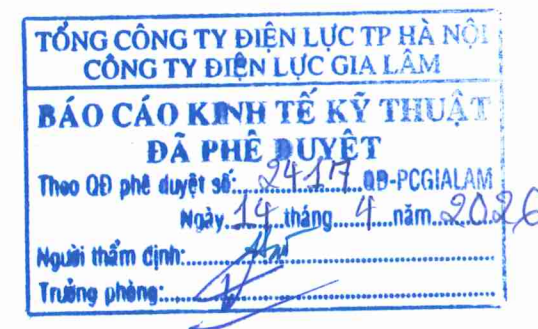 TỔNG CÔNG TY ĐIỆN LỰC TP HÀ NỘI
CÔNG TY ĐIỆN LỰC GIA LÂM
BÁO CÁO KINH TẾ KỸ THUẬT
ĐÃ PHÊ DUYỆT
Theo QĐ phê duyệt số:...2417...QĐ-PCGIALAM
Ngày...14...tháng...4...năm...2026
Người thẩm định:
Trưởng phòng: